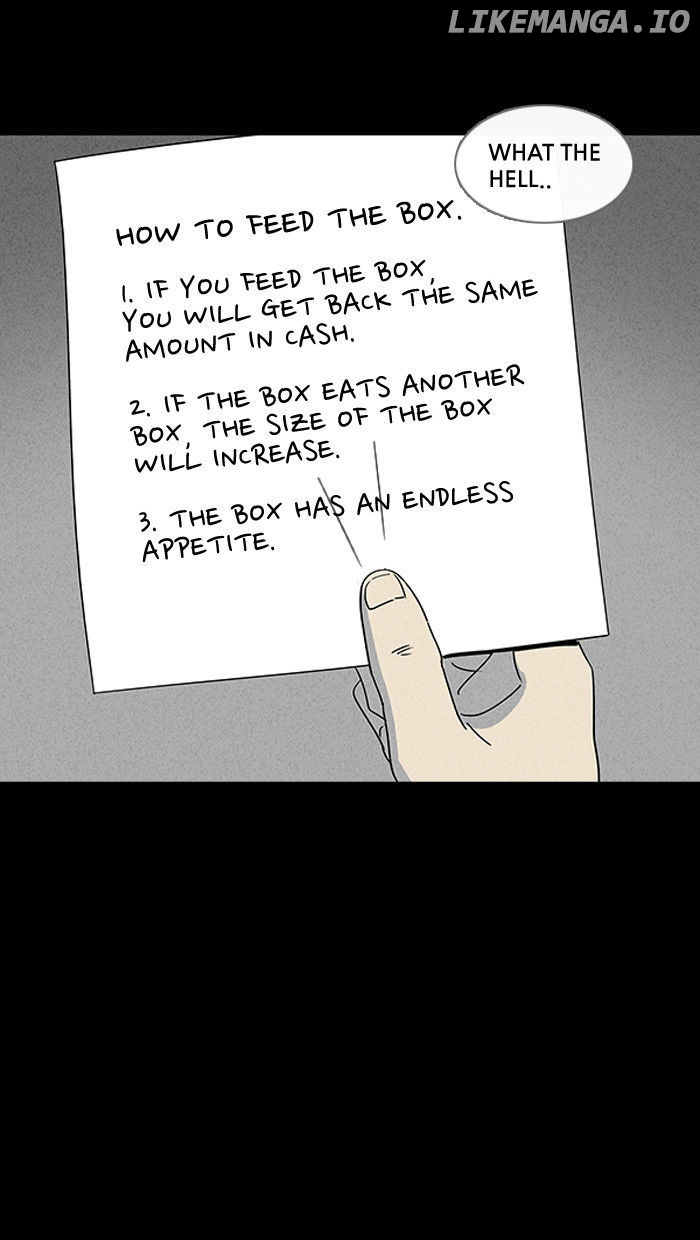 LIKEMANGA.IO
WHAT THE
HELL..
HOW TO FEED THE BOX.
1. IF YOU FEED THE BOX,
YOU WILL GET BACK THE SAME
AMOUNT IN CASH.
2. IF THE BOX EATS ANOTHER
BOX, THE SIZE OF THE BOX
WILL INCREASE.
3. THE BOX HAS AN ENDLESS
APPETITE.